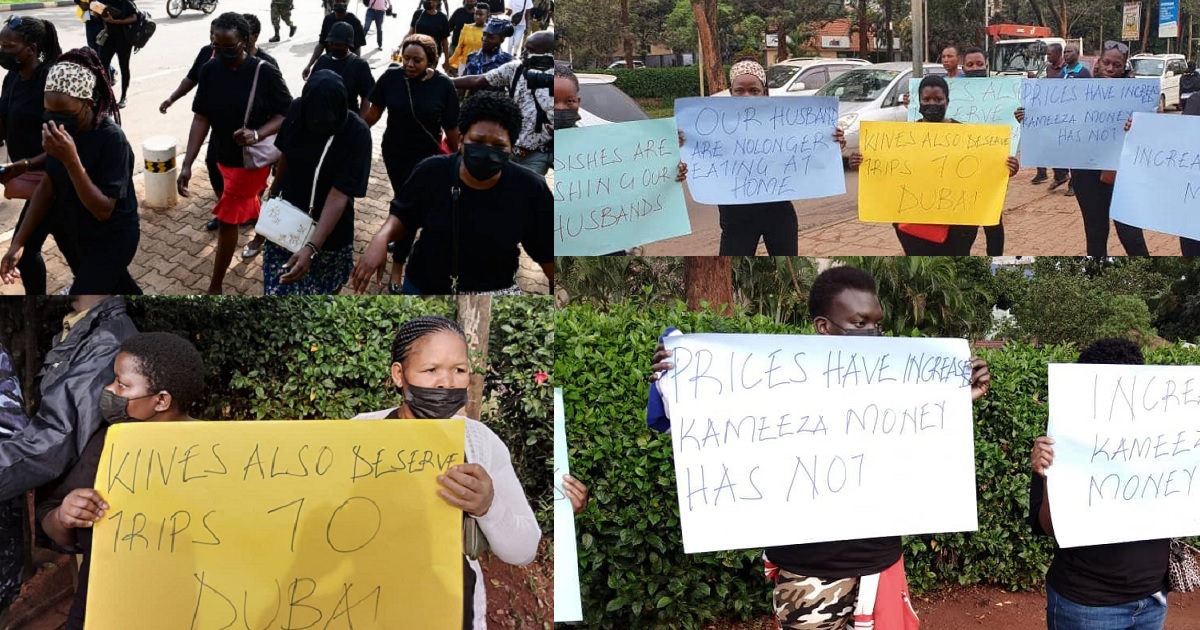 DISHES ARE
SHING OUR
HUSBANDS
OUR HUSBAND
ARE NOLONGER
EATING AT
HOME
ALSO
SERVE
TRIPS TO
DUBAI
PRICES HAVE INCREASE
KAMEEZA MONEY
HAS NOT
INCREA
M
WIVES ALSO DESERVE
TRIPS TO
DUBAI
PRICES HAVE INCREASE
KAMEEZA MONEY
HAS NOT
INCRE
KAMEEZ
MONEY